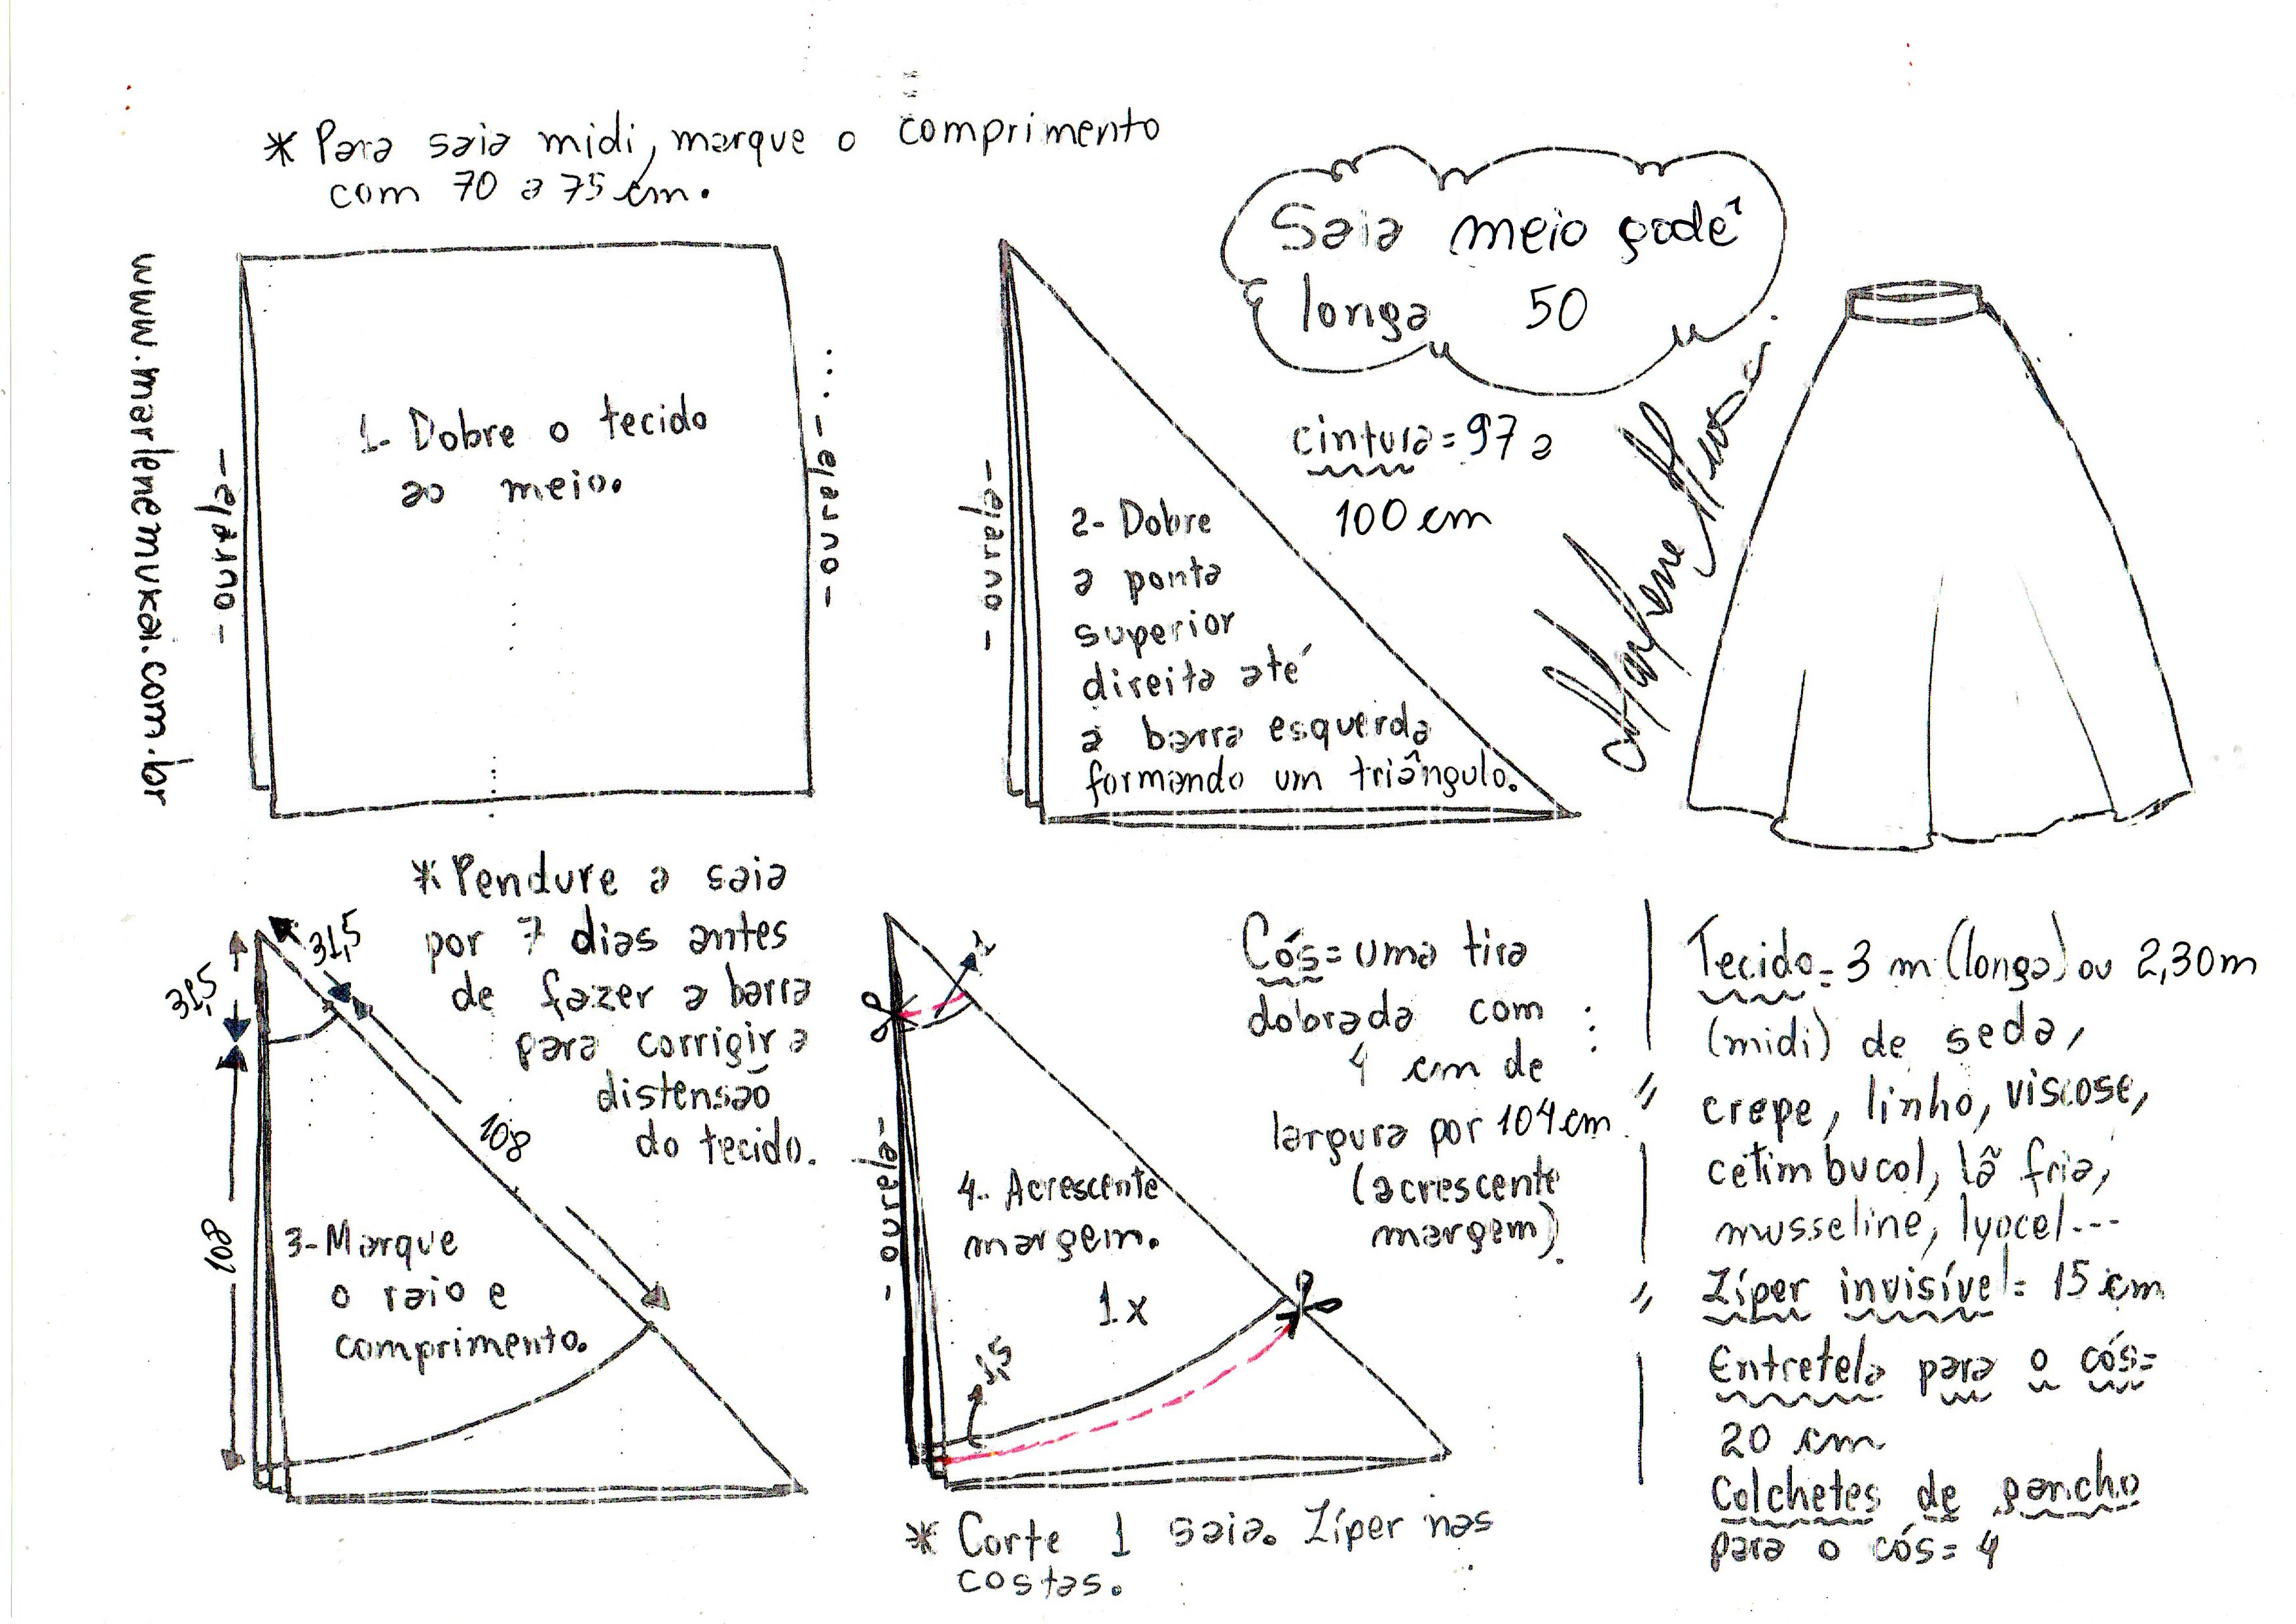 * Para saia midi, marque o comprimento
com 70 a 75 cm.
www.marlenemukai.com.br
Saia meio godê
longa 50
cintura = 97 a
100 cm
Marlene Mukai
- ourela -
1- Dobre o tecido
ao meio.
- ourela -
- ourela -
2- Dobre
a ponta
superior
direita até
a barra esquerda
formando um triângulo.
* Pendure a saia
por 7 dias antes
de fazer a barra
para corrigir a
distensão
do tecido.
31,5
31,5
108
108
3- Marque
o raio e
comprimento.
1
- ourela -
4- Acrescente
margem.
1 x
1,5
* Corte 1 saia. Zíper nas
costas.
Cós = uma tira
dobrada com
4 cm de
largura por 104 cm
(acrescente
margem).
Tecido = 3 m (longa) ou 2,30m
(midi) de seda,
crepe, linho, viscose,
cetim bucol, lã fria,
musseline, lyocel...
Zíper invisível = 15 cm
Entretela para o cós =
20 cm
Colchetes de gancho
para o cós = 4